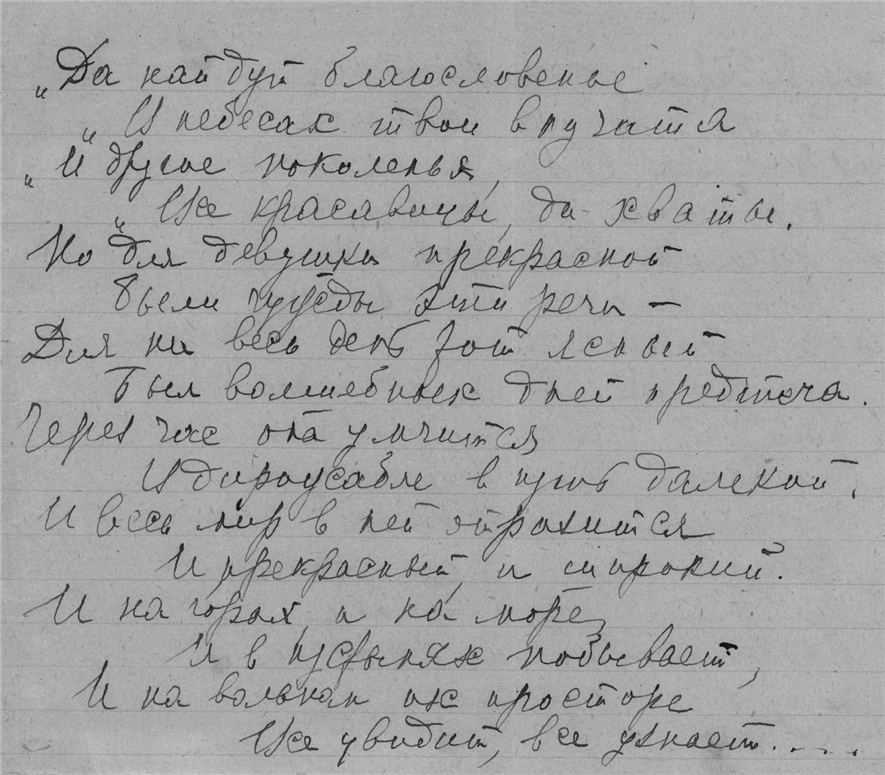 „Да найдут благословенье
„И небесах твои внучата
„И другие поколенья,
„Все красавицы, да хваты.
Но для девушки прекрасной
Были чужды эти речи —
Для ни весь день этот ясный
Был волшебных дней предтеча.
Через час она умчится
И дироусабле в путь далекой,
И весь мир в ней отразится
И прекрасный, и широкий.
И на горах, и на море,
И в пустынях побывает,
И на вольнах их просторе
Все увидит, все узнает....